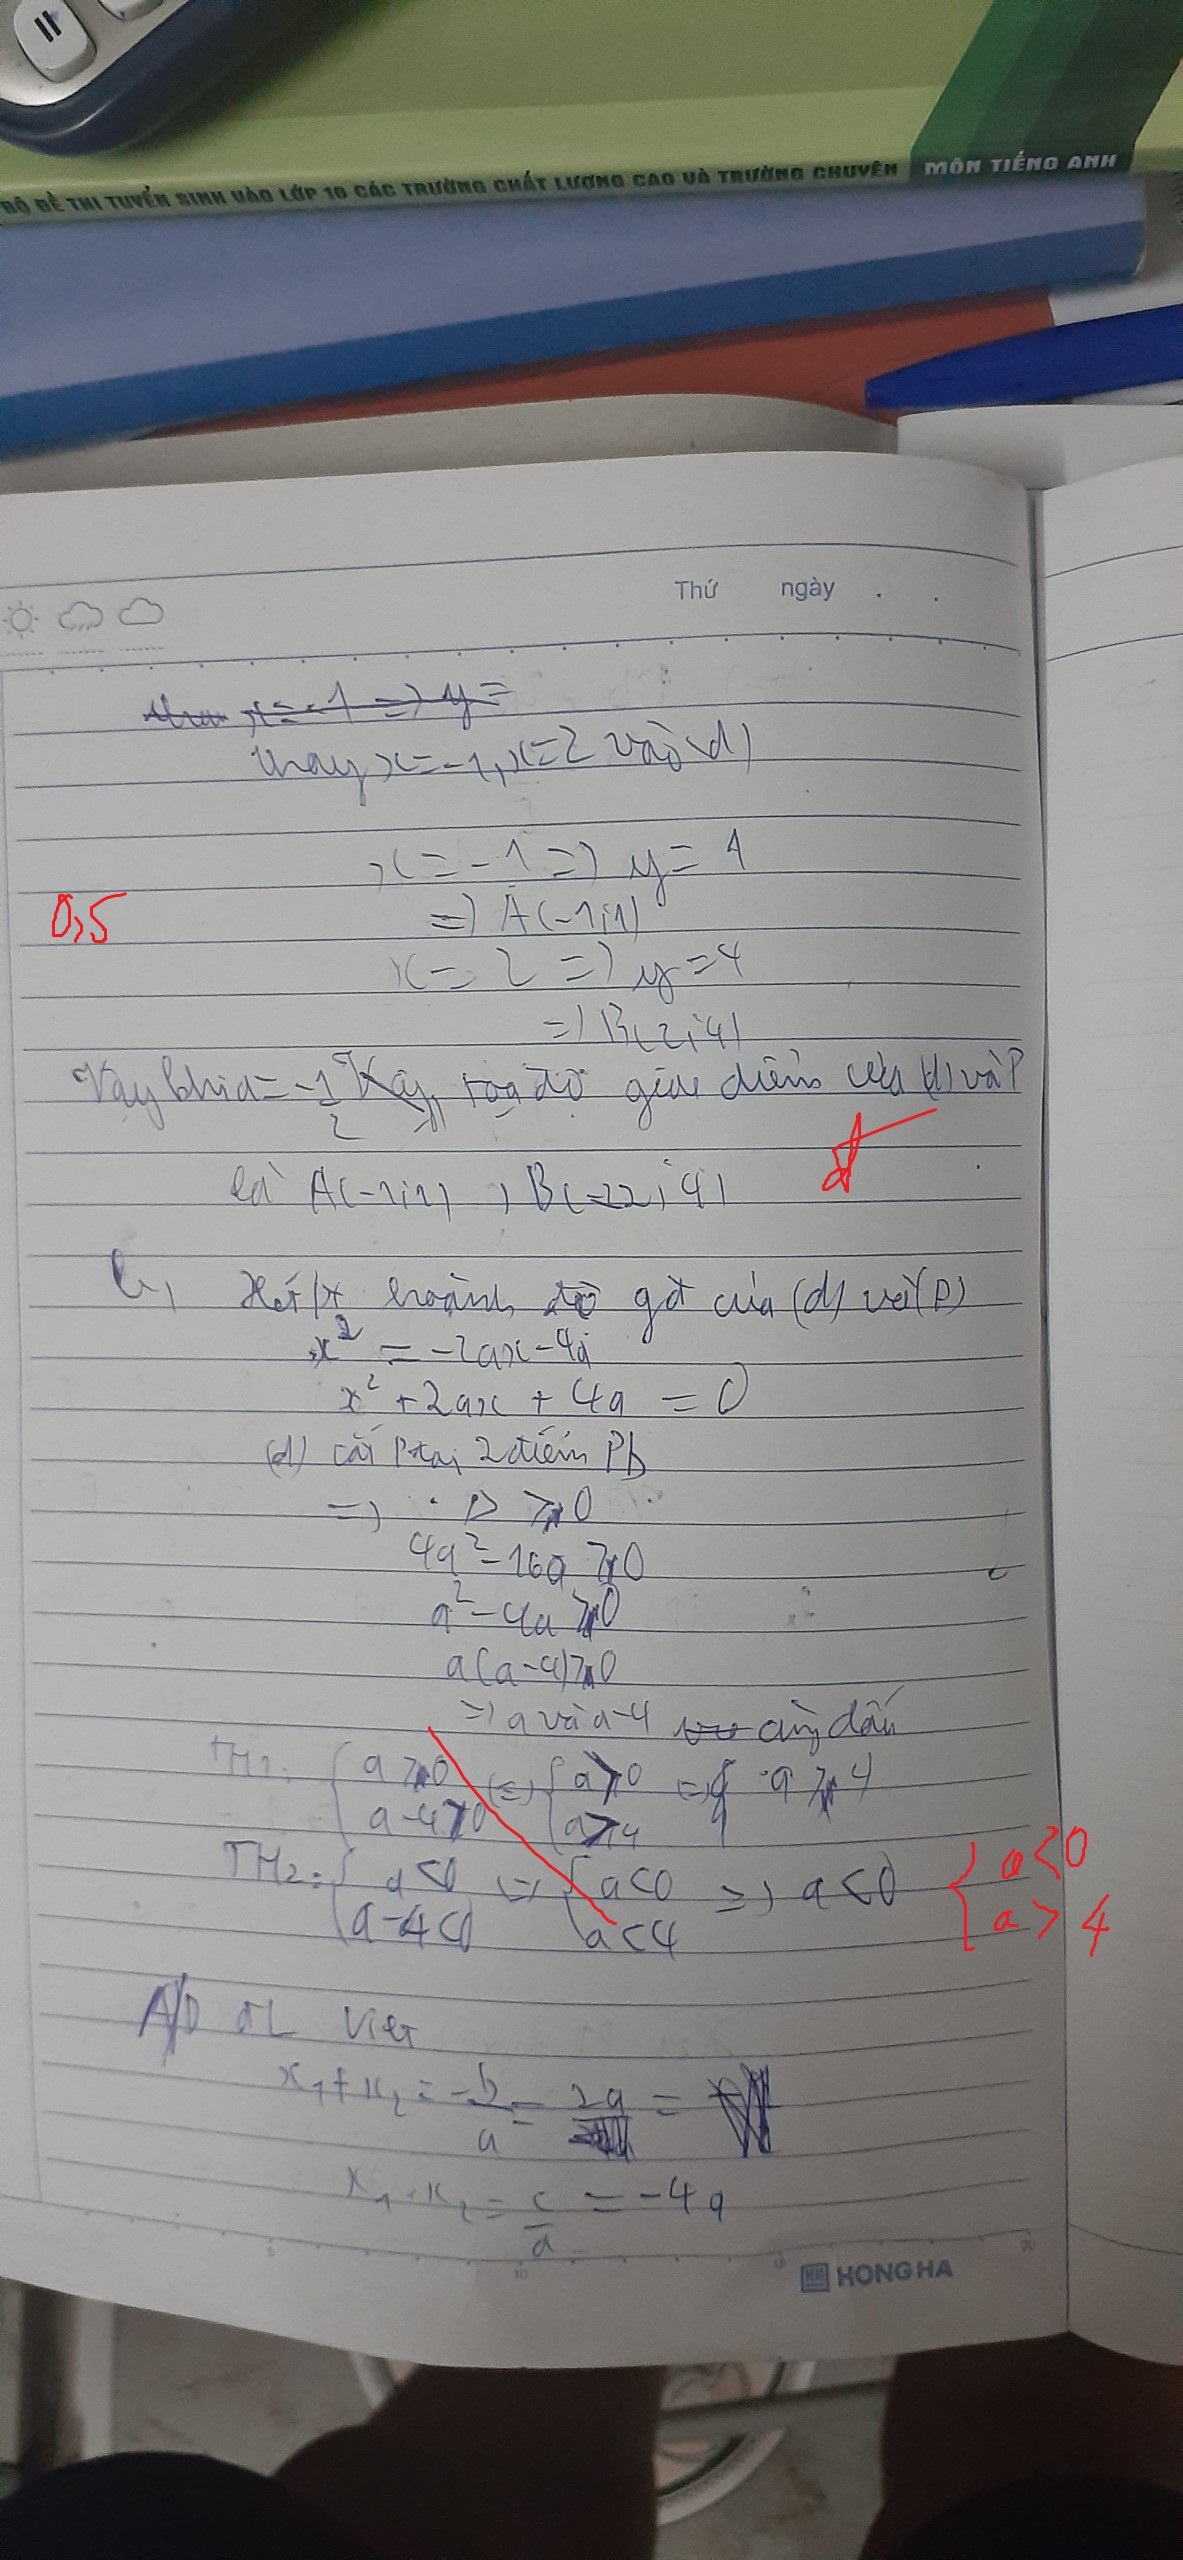 BỘ ĐỀ THI TUYỂN SINH VÀO LỚP 10 CÁC TRƯỜNG CHẤT LƯỢNG CAO VÀ TRƯỜNG CHUYÊN MÔN TIẾNG ANH
Thứ ngày . .
x=-1 => y=
thay x=-1, x=2 vào (d)
x=-1 => y=1
0,5
=> A(-1;1)
x=2 => y=4
=> B(2;4)
Vậy khi a=-1/2 toạ độ giao điểm của (d) và P
là A(-1;1), B(2;4)
b, Xét pt hoành độ gđ của (d) với (P)
x² = -2ax-4a
x²+2ax+4a=0
(d) cắt P tại 2 điểm Pb
=> Δ > 0
4a²-16a > 0
a²-4a > 0
a(a-4) > 0
=> a và a-4 cùng dấu
TH1: { a>0 a-4>0 <=> { a>0 a>4 => a>4
TH2: { a<0 a-4<0 <=> { a<0 a<4 => a<0 { a<0 a>4
A/D ĐL Viet
x₁+x₂ = -b/a = 2a =
x₁.x₂ = c/a = -4a
HONG HA